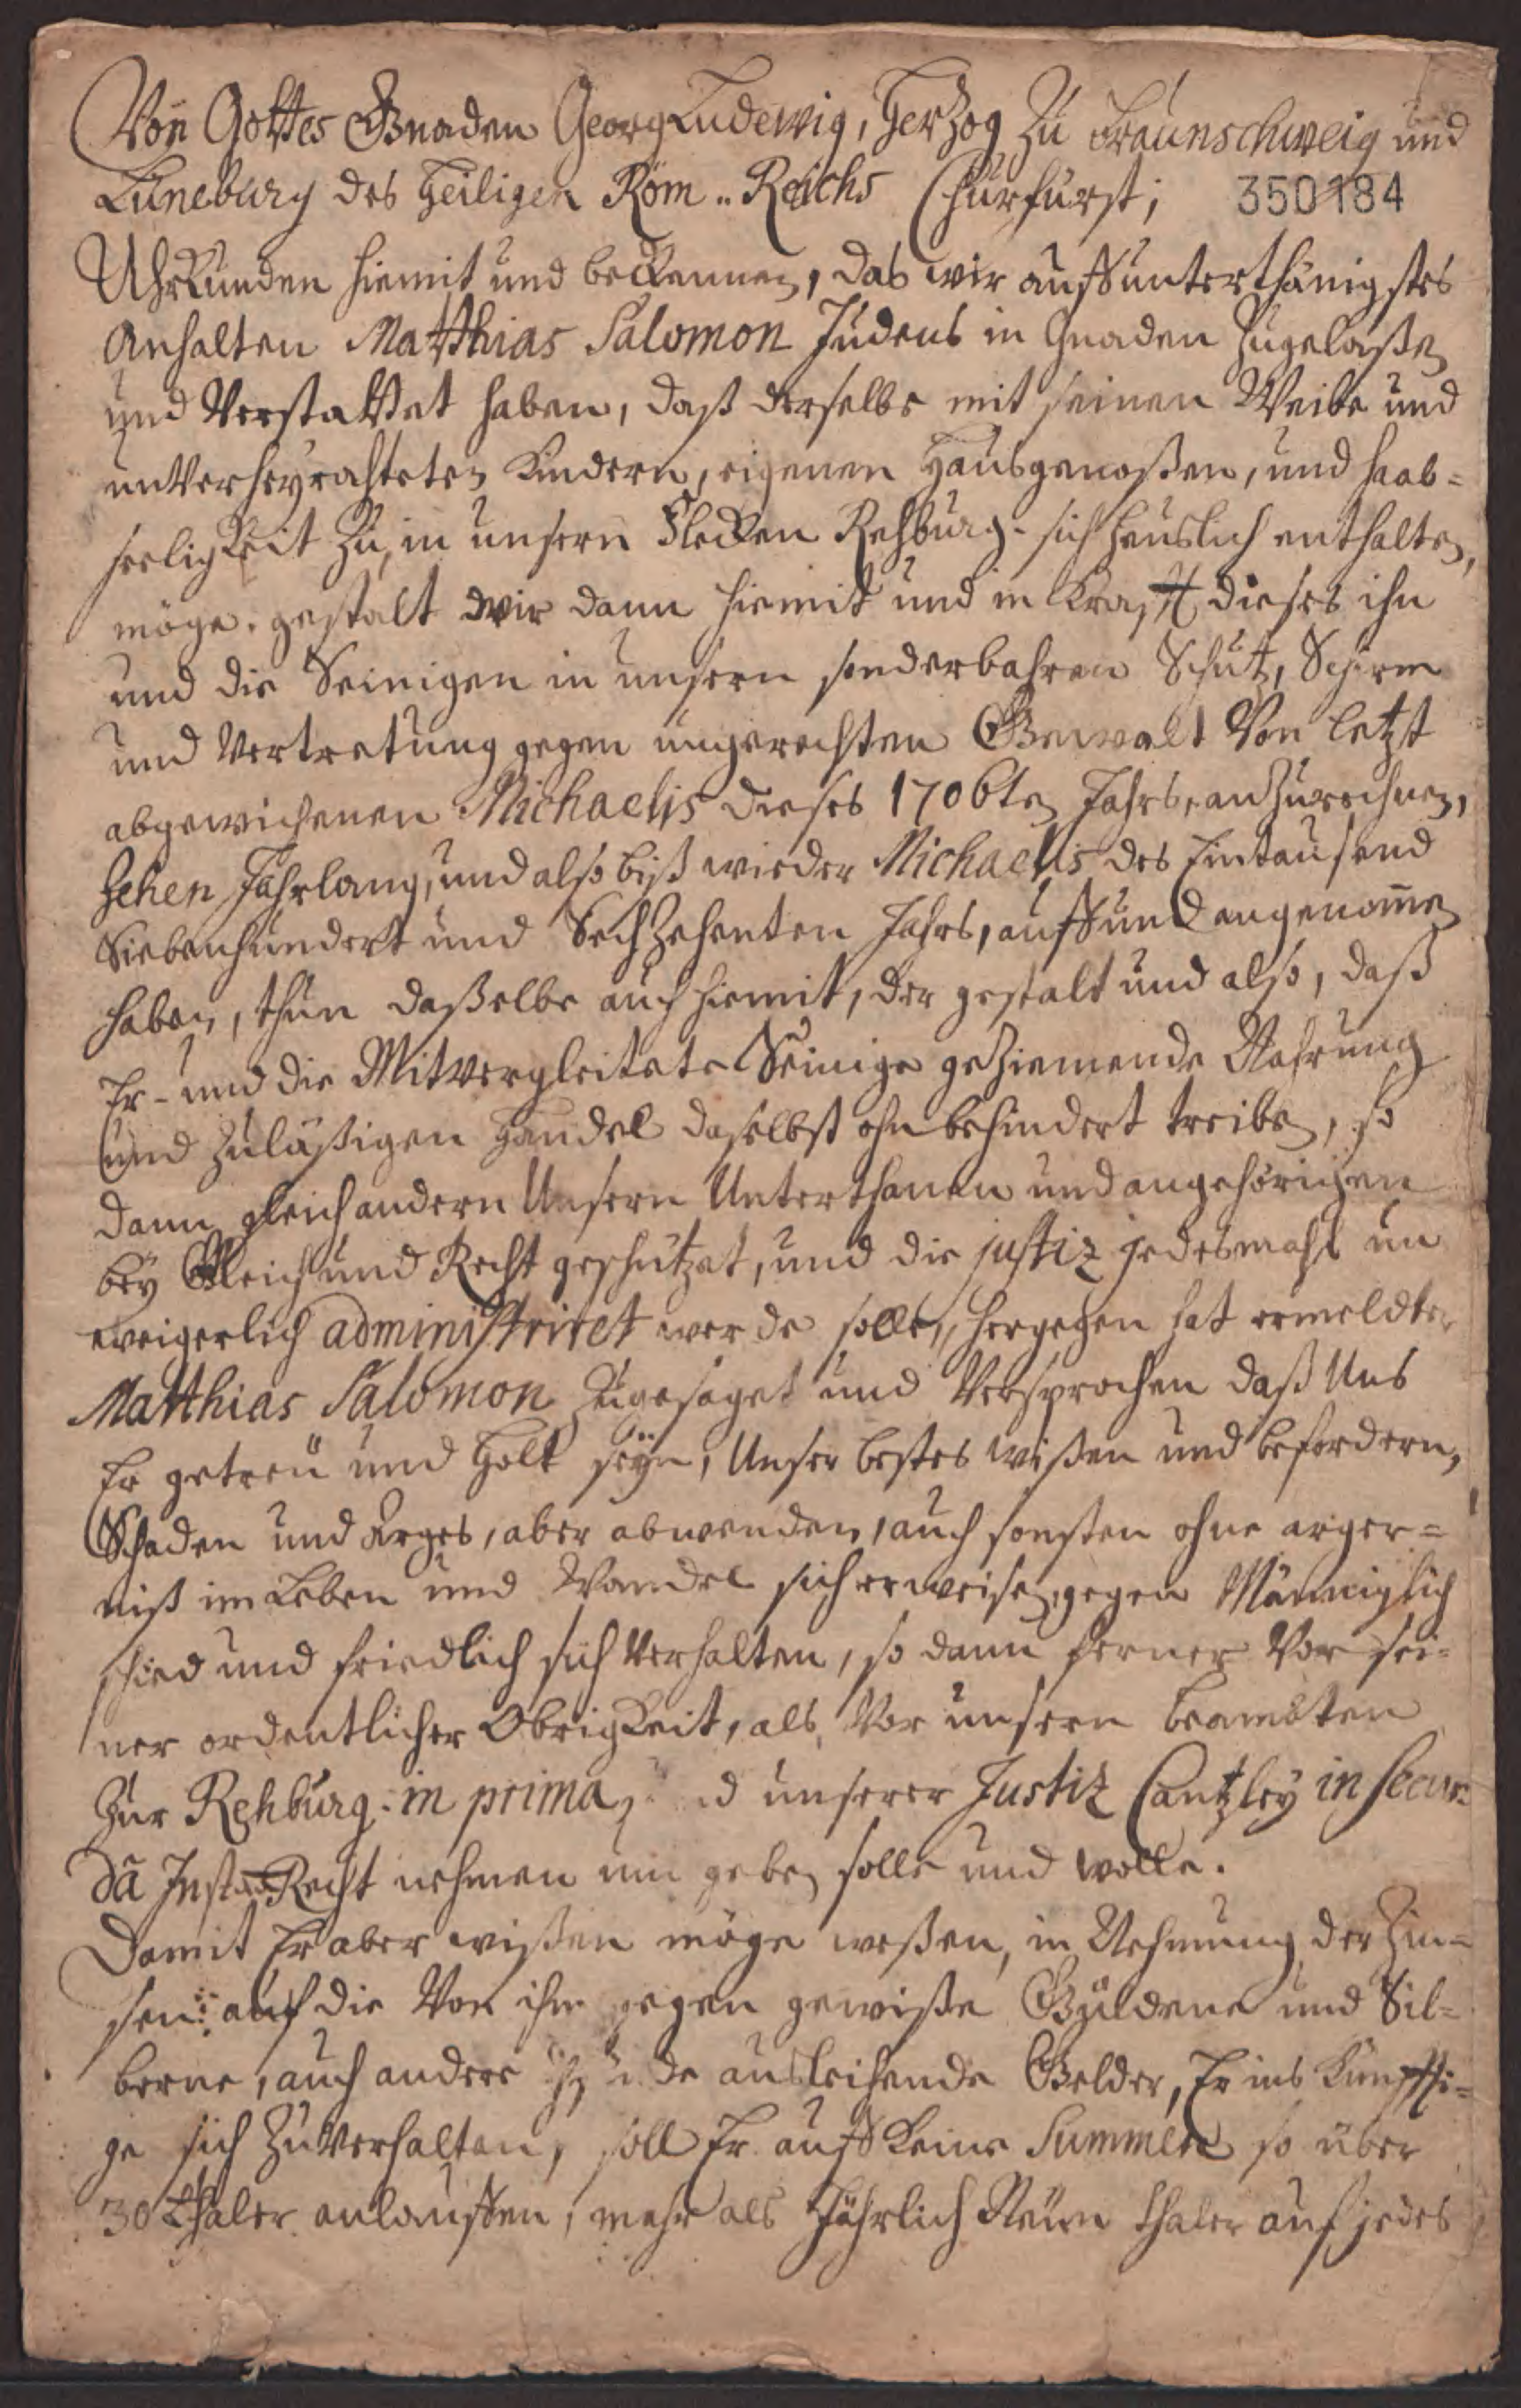 Von Gottes Gnaden Georg Ludewig, Hertzog Zu Braunschweig und
Lüneburg des Heiligen Röm.. Reichs Churfürst; 350184
Uhrkunden hiemit und bekennen, das wir auff unterthänigstes
Anhalten Matthias Salomon Judens in Gnaden Zugelaßen
und Verstattet haben, daß derselbe mit seinen Weibe und
unVerheyrahteten Kindern, eigenen Haußgenoßen, und haab=
seeligkeit Zu, in unsern Flecken Rehburg- sich heuslich enthalten,
möge. gestalt wir dann hiemit und in Krafft dieses ihn
und die Seinigen in unsern sonderbahren Schutz, Schirm
und Vertretung gegen ungerechten Gewalt Von letzt
abgewichenen Michaelis dieses 1706ten Jahrs, anZurechnen,
Zehen Jahrlang, und also biß wieder Michaelis des Eintausend
Siebenhundert und SechZehenten Jahrs, auff und angenom̄en
haben, thun daßelbe auch hiemit, der gestalt und also, daß
Er- und die Mitvergleitete Seinige geZiemende Nahrung
und Zuläßigen Handel daselbst ohnbehindert treiben, so
dann gleich andern Unsern Unterthanen und angehörigen
bey Gleich und Recht geschützet, und die justiz jedesmahl un
weigerlich administriret werde solle, hergegen hat ermeldter
Matthias Salomon Zugesaget und Versprochen daß Uns
Er getreu und Holt seyn, Unser bestes wißen und befordern,
Schaden und Arges, aber abwenden, auch sonsten ohne arger=
niß im Leben und Wandel sich erweisen, gegen Männiglich
schied und friedlich sich Verhalten, so dann ferner Vor sei=
ner ordentlicher Obrigkeit, als, Vor unsern beambten
Zur Rehburg. in prima, d unserer Justiz Cantzley in secun=
dâ Recht nehmen um geben solle und wolle.
Damit Er aber wißen möge weßen, in Nehmung der Zin=
sen auf die Von ihm gegen gewiße Güldene und Sil=
berne, auch andere ausleihende Gelder, Er ins Künffti=
ge sich ZuVerhalten, soll Er auff Keine Summen so über
30 thaler anlauffen, mehr als Jährlich Neun thaler auf jedes